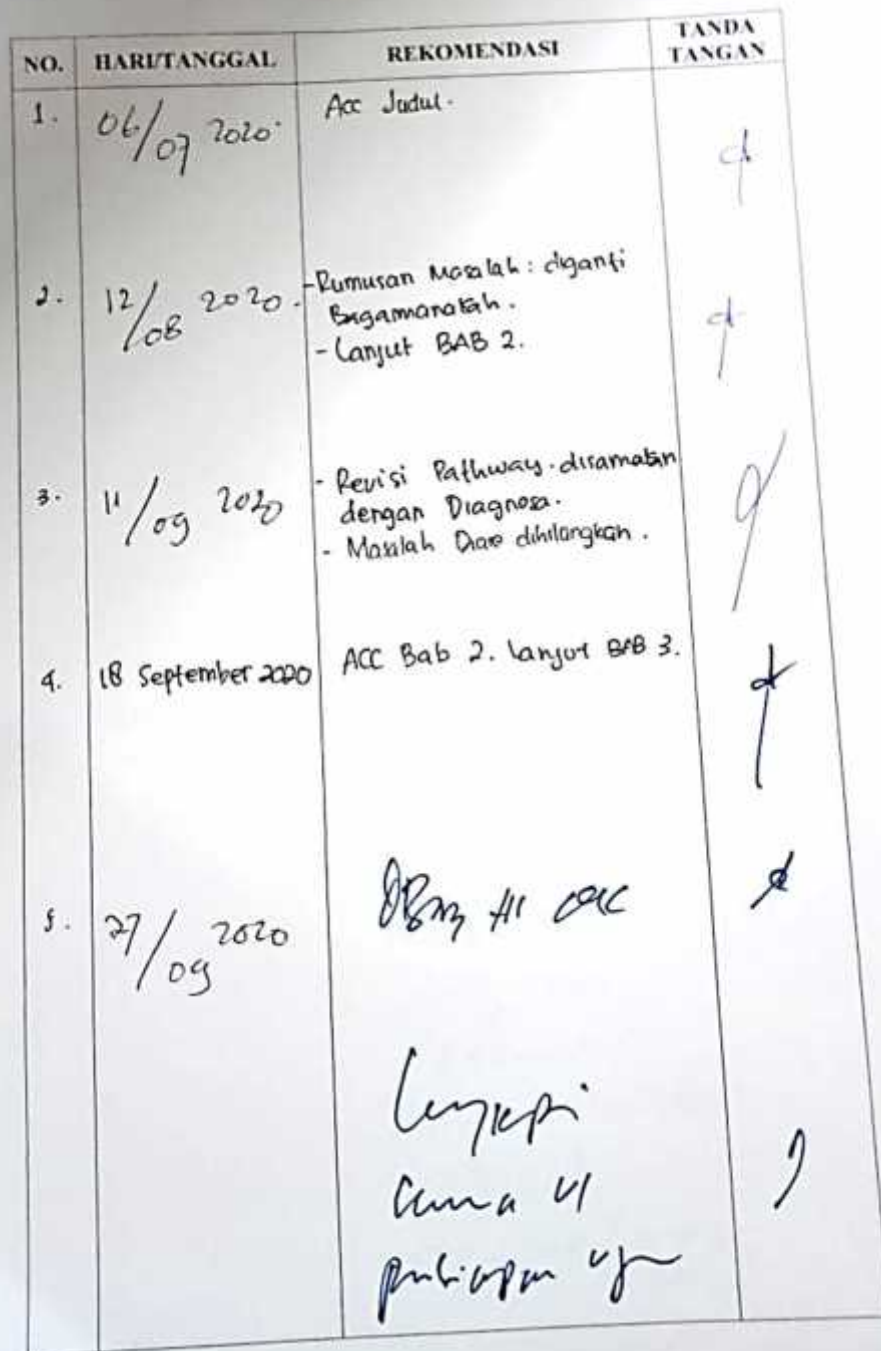 NO. HARI/TANGGAL REKOMENDASI TANDA TANGAN
1. 06/07 2020. Acc Judul.
2. 12/08 2020. - Rumusan Masalah: diganti
Bagaimanakah.
- Lanjut BAB 2.
3. 11/09 2020 - Revisi Pathway. disamakan
dengan Diagnosa.
- Masalah Diare dihilangkan.
4. 18 September 2020 ACC Bab 2. Lanjut BAB 3.
5. 27/09 2020
Lengkapi